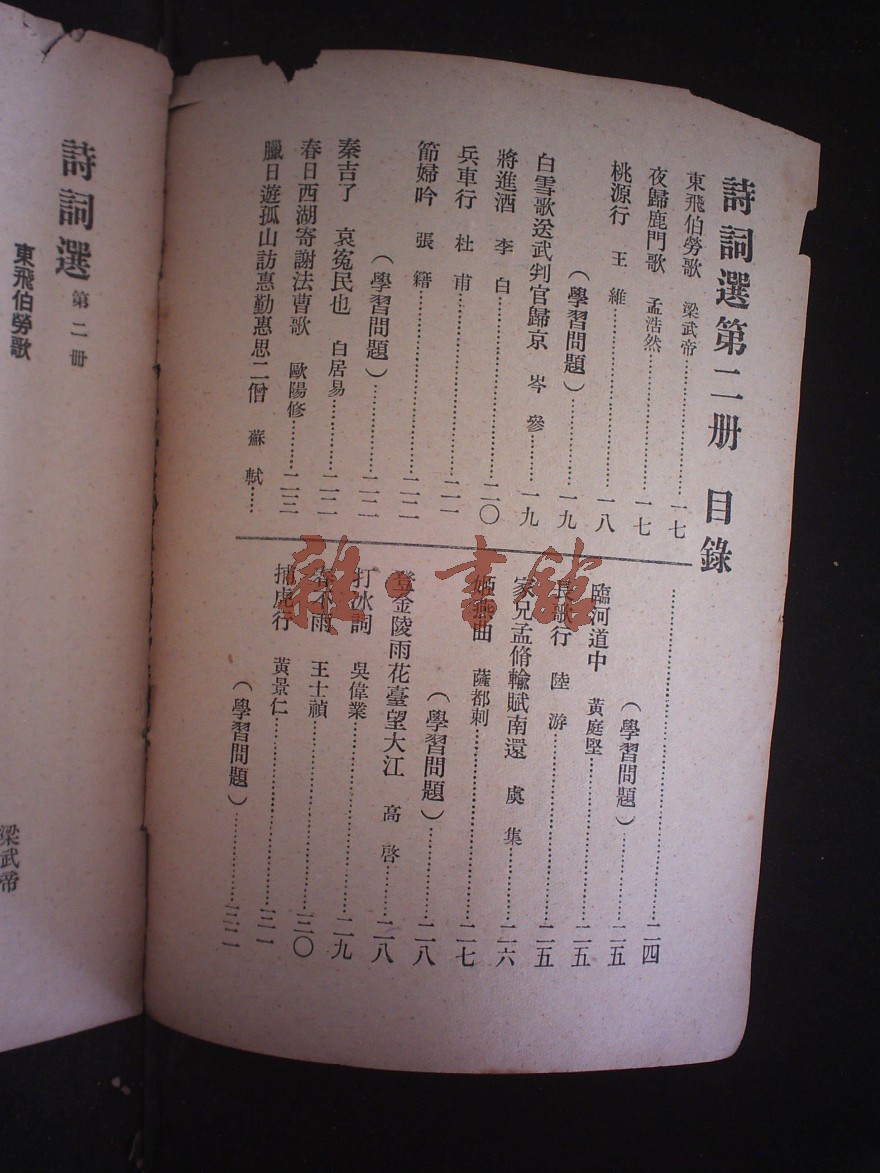 詩詞選第二册　目錄
東飛伯勞歌　梁武帝………一七
夜歸鹿門歌　孟浩然………一七
桃源行　王　維………一八
（學習問題）………一九
白雪歌送武判官歸京　岑　參………一九
將進酒　李　白………二〇
兵車行　杜　甫………二一
節婦吟　張　籍………二二
（學習問題）………二二
秦吉了　哀冤民也　白居易………二二
春日西湖寄謝法曹歌　歐陽修………二三
臘日遊孤山訪惠勤惠思二僧　蘇　軾………
………二四
（學習問題）………二五
臨河道中　黃庭堅………二五
長歌行　陸　游………二五
家兄孟脩輸賦南還　虞　集………二六
姬燕曲　薩都剌………二七
（學習問題）………二八
登金陵雨花臺望大江　高　啓………二八
打冰詞　吳偉業………二九
春不雨　王士禎………三〇
捕虎行　黃景仁………三一
（學習問題）………三二
詩詞選　第二册
東飛伯勞歌
梁武帝
雜·書館